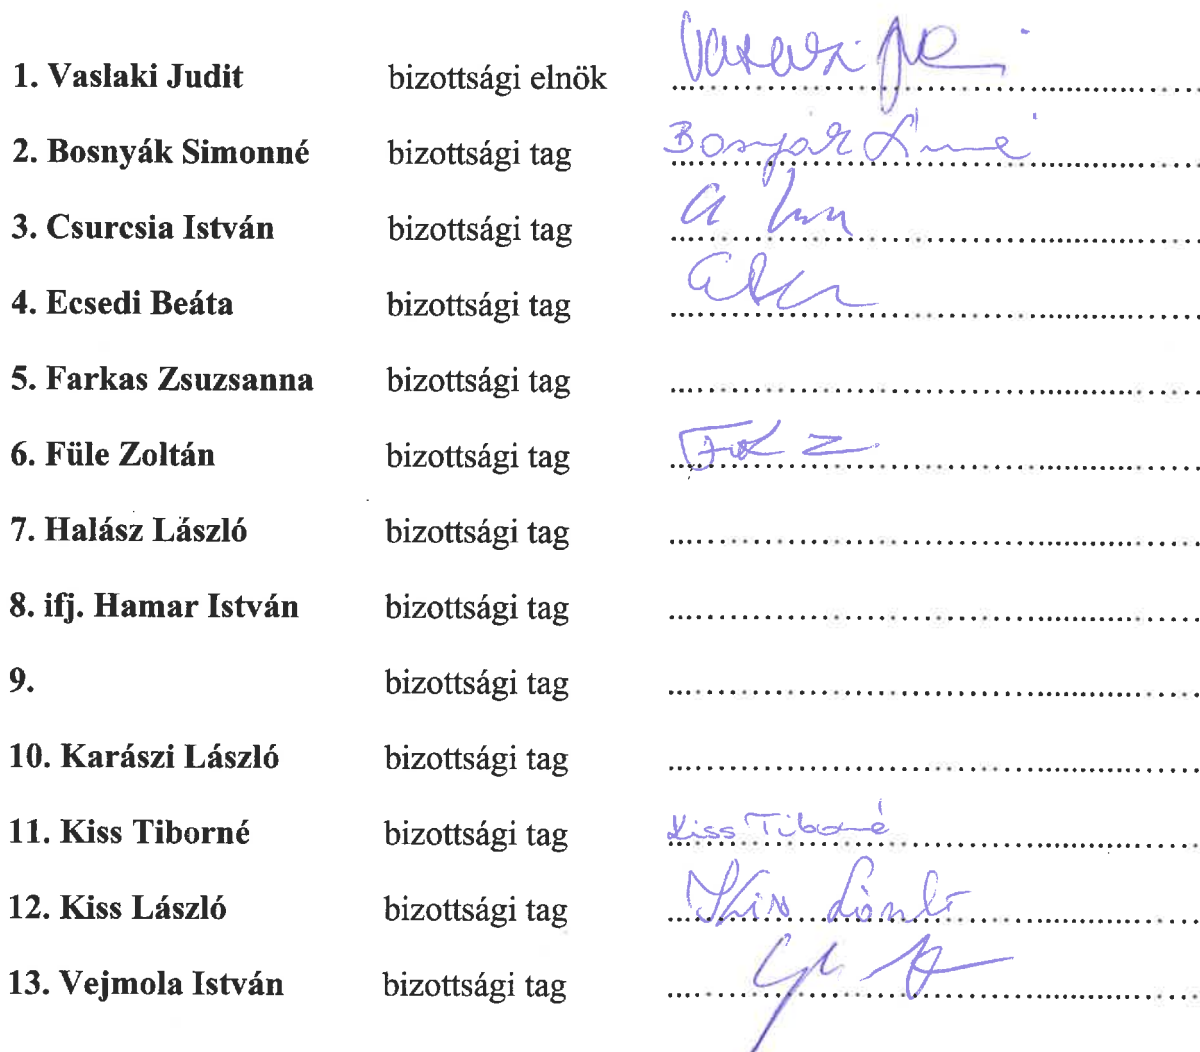 1. Vaslaki Judit bizottsági elnök ....................
2. Bosnyák Simonné bizottsági tag Bosnyák Simonné
3. Csurcsia István bizottsági tag ....................
4. Ecsedi Beáta bizottsági tag ....................
5. Farkas Zsuzsanna bizottsági tag ....................
6. Füle Zoltán bizottsági tag ....................
7. Halász László bizottsági tag ....................
8. ifj. Hamar István bizottsági tag ....................
9. bizottsági tag ....................
10. Karászi László bizottsági tag ....................
11. Kiss Tiborné bizottsági tag Kiss Tiborné
12. Kiss László bizottsági tag Kiss László
13. Vejmola István bizottsági tag ....................